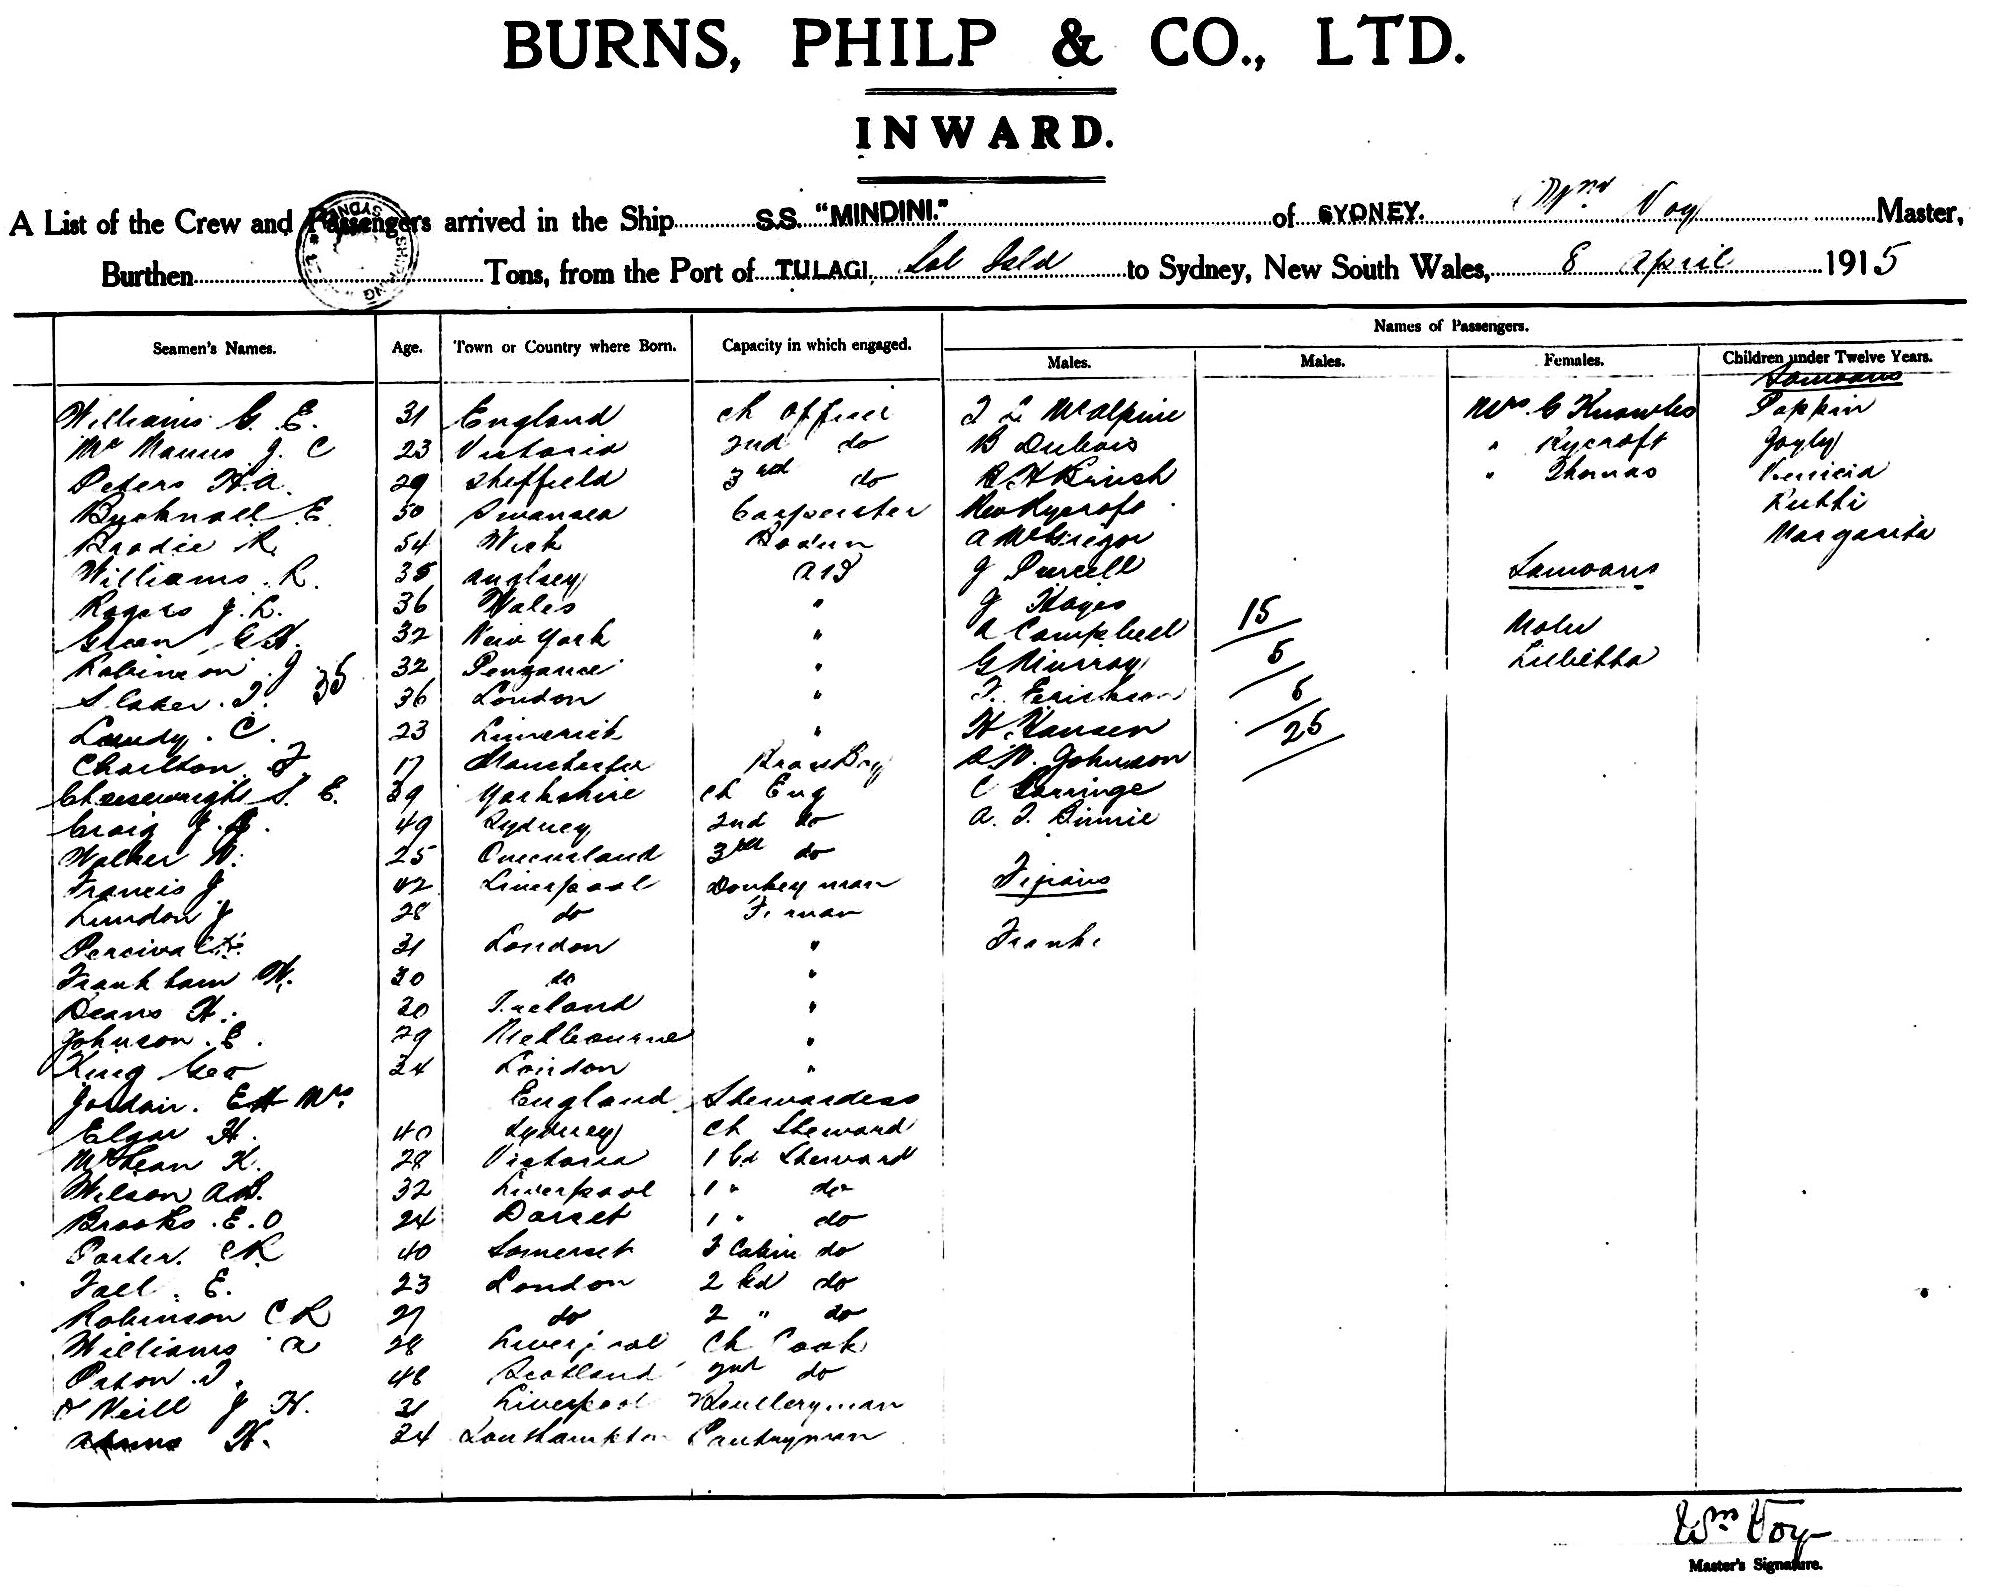 BURNS, PHILP & CO., LTD.
INWARD.
A List of the Crew and Passengers arrived in the Ship S.S. "MINDINI." of SYDNEY. Wm Voy Master,
Burthen Tons, from the Port of TULAGI, Sol Isld to Sydney, New South Wales, 8 April 1915
Names of Passengers.
Seamen's Names. Age. Town or Country where Born. Capacity in which engaged. Males. Males. Females. Children under Twelve Years.
Samoans
Williams G. E. 31 England ch officer McAlpine Mrs G Knowles Poppin
Mc Manus J. C 23 Victoria 2nd do B Dubois " Rycroft
Peters H.A. 29 Sheffield 3rd do " Thomas
Bucknall E. 50 Swansea Carpenter Rev Rycroft
Brodie R. 54 Wick Bosun A McGregor Margarita
Williams. R. 35 Anglsey AB J Purcell Samoans
Rogers J. R. 36 Wales " J Hayes 15
Green G H. 32 New York " A Campbell
Robinson J 32 Penzance " G Murray 5
35
Slaker. T. 36 London " F. Erickson 5
Lundy. C. 23 Limerick " H Hansen 25
Charlton. J 17 Manchester A. M. Johnson
Cheesewright S. E. 39 Yorkshire ch Eng C Gorringe
Craig J. 49 Sydney 2nd do A. J. Binnie
Walker W. 25 Queensland 3rd do
Francis J 42 Liverpool Donkeyman Fijians
Lundon J 28 do F. man
Percival 31 London " Frank.
Frankham W. 30 do "
Deans H. 30 Ireland "
Johnson. E. 29 Melbourne "
King Geo 34 London "
Jordan. Mrs England Stewardess
Elgar H. 40 Sydney ch Steward
McLean K. 28 Victoria 1 Cl Steward
Wilson A.B. 32 Liverpool 1 " do
Brooks. E. O 24 Dorset 1 " do
Porter. C R 40 Somerset F Cabin do
Fall. E. 23 London 2 Cl do
Robinson C R 27 do 2 " do
Williams 28 Liverpool Ch Cook
Paton. J. 48 Scotland 2nd do
O'Neill J H. 31 Liverpool Sculleryman
Adams H. 34 Southampton Pantryman
Wm Voy
Master's Signature.